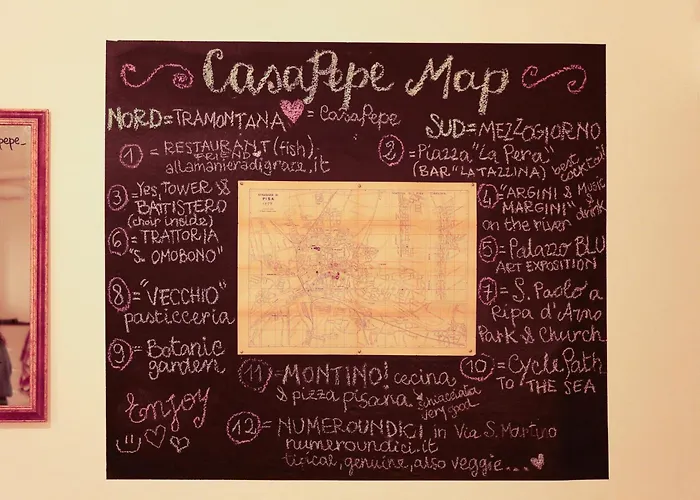 CasaPepe Map
NORD=TRAMONTANA
= CasaPepe
SUD=MEZZOGIORNO
1 = RESTAURANT (fish)
FRIEND
allamanieradigraze.it
2 = Piazza "La Pera"
(BAR "LA TAZZINA) best
cocktail
3 = Yes TOWER &
BATTISTERO
(choir inside)
4 = "ARGINI & Music
MARGINI" & drink
on the river
6 = TRATTORIA
"S. OMOBONO"
5 = Palazzo BLU
ART EXPOSITION
8 = "VECCHIO"
pasticceria
7 = S. Paolo a
Ripa d'Arno
Park & Church
9 = Botanic
garden
10 = Cycle Path
TO THE SEA
11 = MONTINO! cecina
& pizza pisana & schiacciata
very good
Enjoy
12 = NUMEROUNDICI in Via S. Martino
numeroundici.it
tipical, genuine, also veggie...
PISA
pepe_